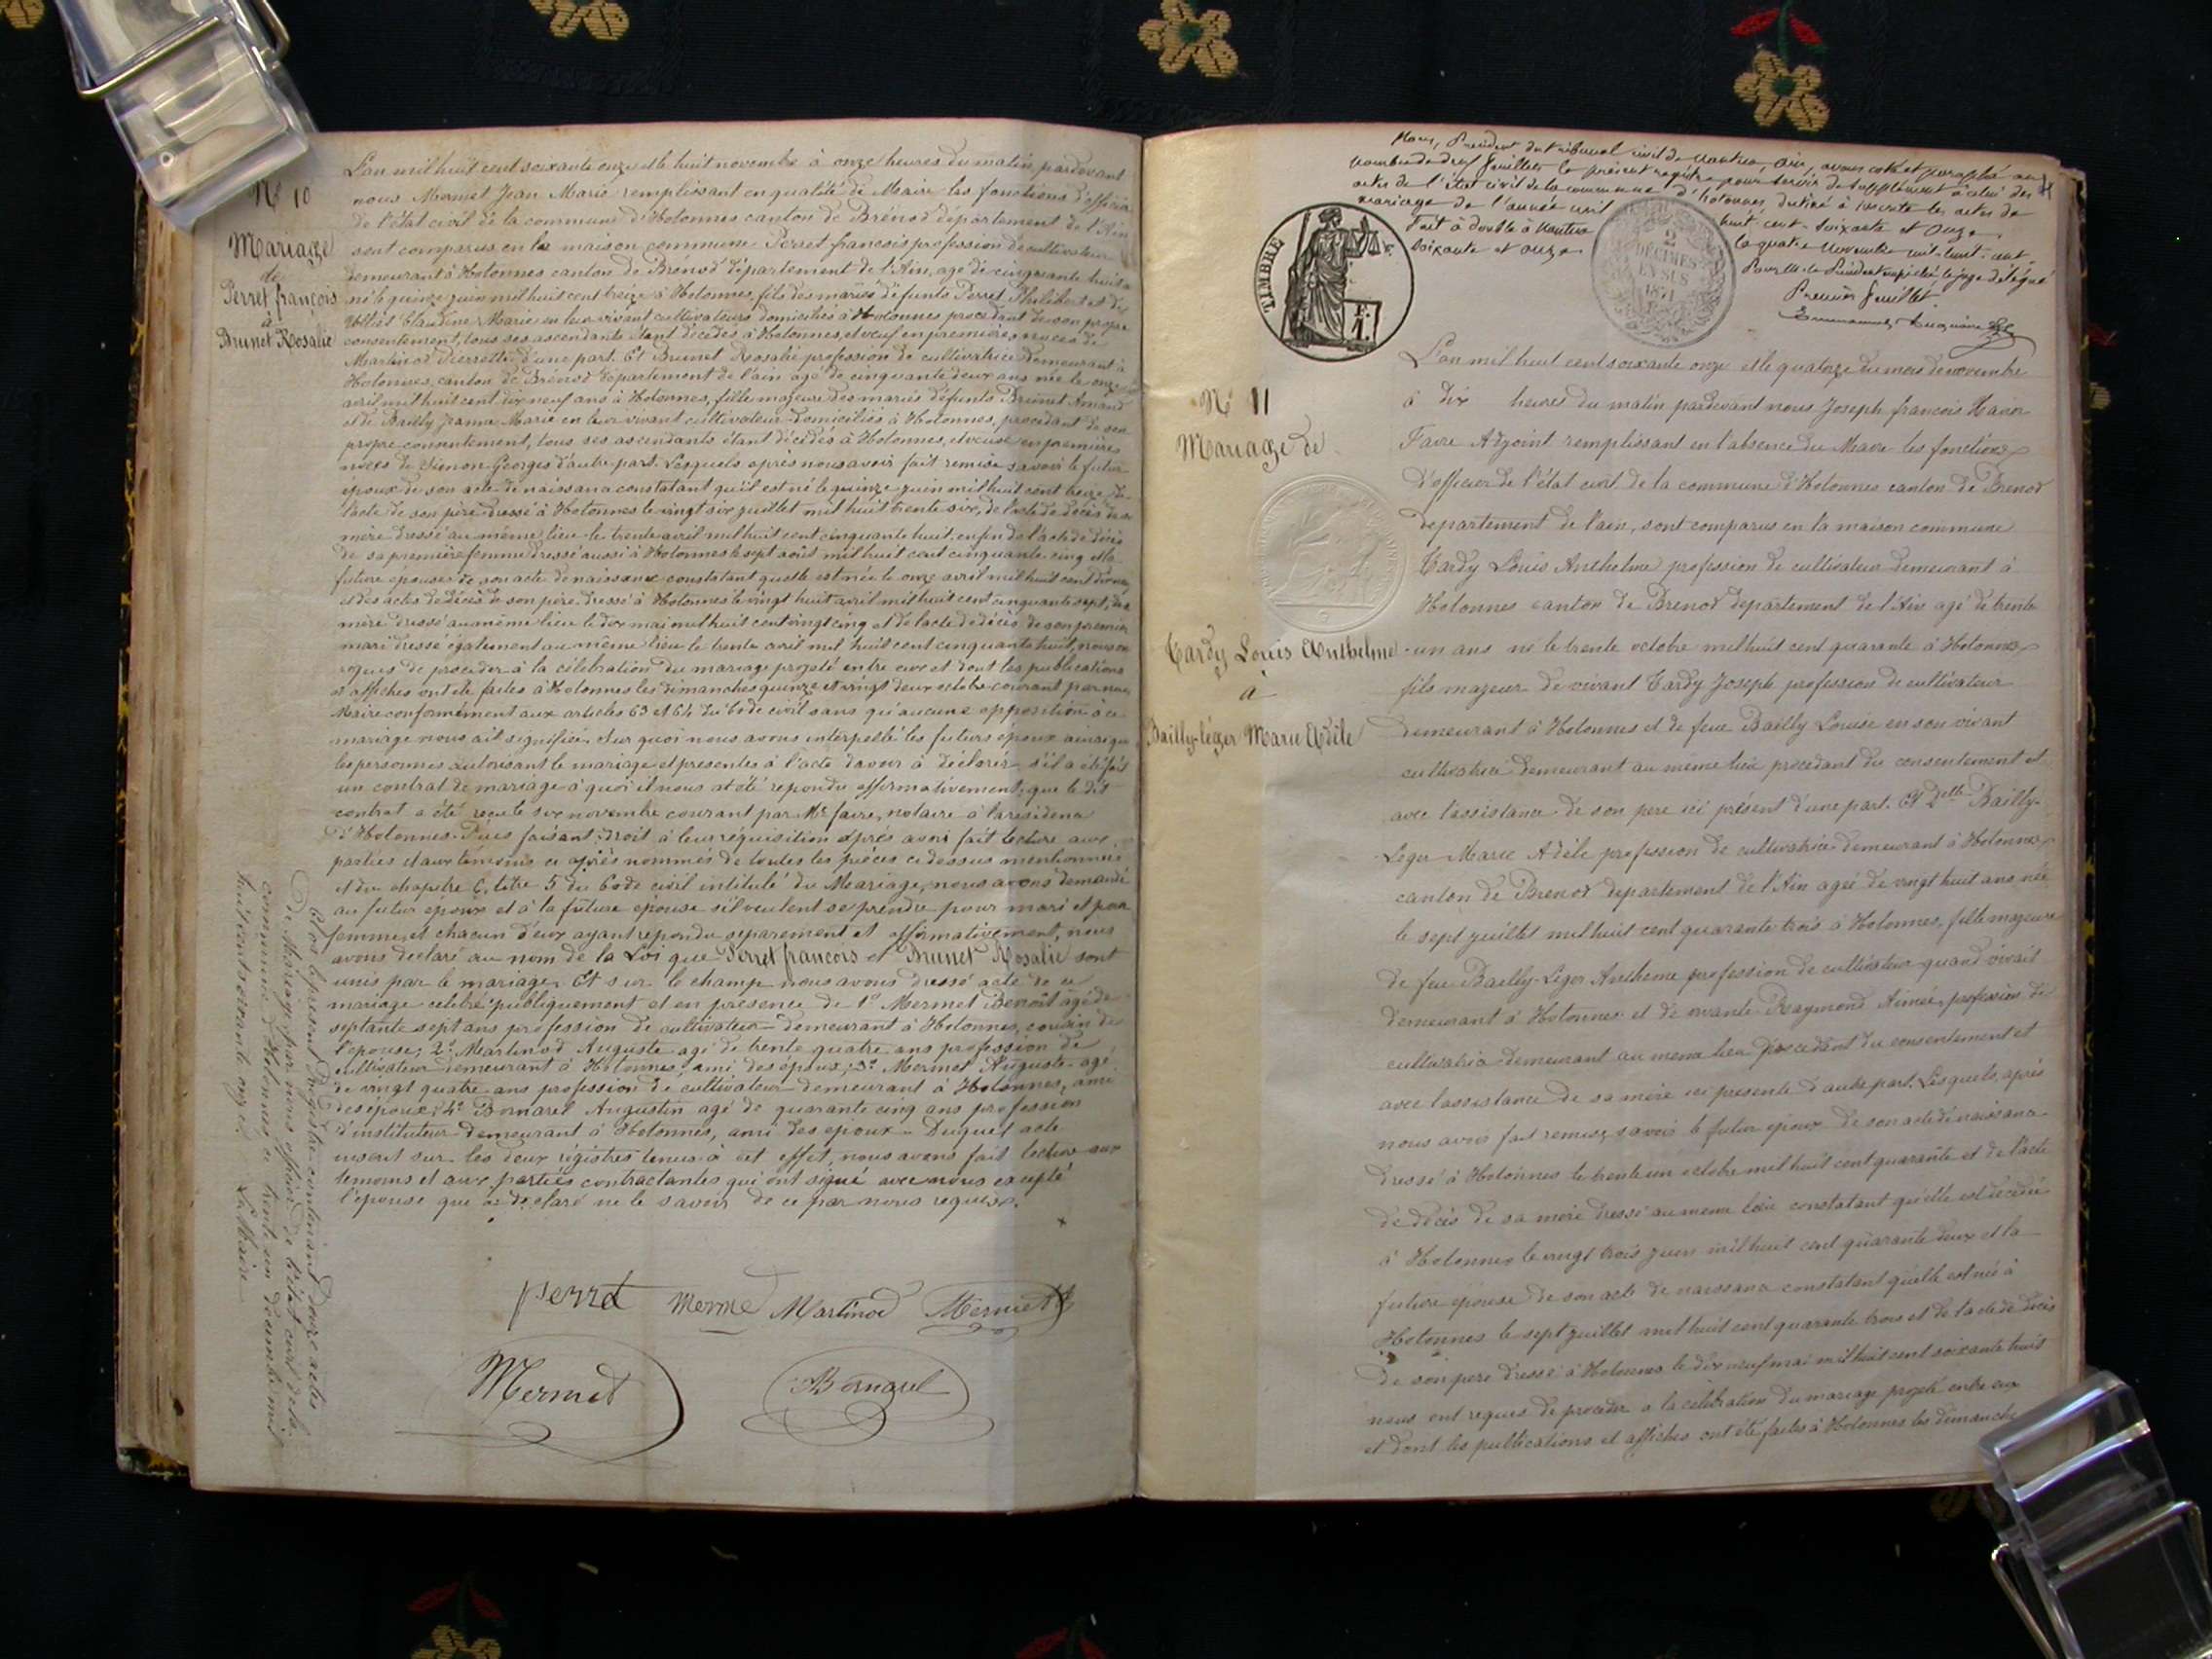 N° 10
Mariage
de
Perret françois
à
Brunet Rosalie
L'an mil huit cent soixante onze et le huit novembre à onze heures du matin, pardevant
nous Mermet Jean Marie remplissant en qualité de Maire les fonctions d'officier
de l'état civil de la commune d'Hotonnes canton de Brénod département de l'Ain
sont comparus en la maison commune Perret francois profession de cultivateur
demeurant à Hotonnes canton de Brénod département de l'Ain, agé de cinquante huit a
né le quinze juin mil huit cent treize à Hotonnes, fils des mariés défunts Perret Philibert et de
Claudine Marie en leur vivant cultivateurs domiciliés à Hotonnes procédant de son propre
consentement, tous ses ascendants étant décédés à Hotonnes, et veuf en premières noces de
Martinod Pierrette d'une part. Et Brunet Rosalie profession de cultivatrice demeurant à
Hotonnes, canton de Brénod département de l'ain agé de cinquante deux ans née le onze
avril mil huit cent dix neuf ans à Hotonnes, fille majeure des mariés défunts Brunet Amand
et de Bailly Jeanne Marie en leur vivant cultivateur domiciliés à Hotonnes, procédant de son
propre consentement, tous ses ascendants étant décédés à Hotonnes, et veuve en premières
noces de Georges d'autre part. Lesquels après nous avoir fait remise savoir le futur
époux de son acte de naissance constatant qu'il est né le quinze juin mil huit cent treize, de
l'acte de son père dressé à Hotonnes le vingt six juillet mil huit trente six, de l'acte de décès de sa
mère dressé au même lieu le trente avril mil huit cent cinquante huit, enfin de l'acte de décès
de sa première femme dressé aussi à Hotonnes le sept août mil huit cent cinquante cinq et la
future épouse de son acte de naissance constatant quelle est née le onze avril mil huit cent dix neuf
et des actes de décès de son père dressé à Hotonnes le vingt huit avril mil huit cent cinquante sept, de sa
mère dressé au même lieu le dix mai mil huit cent vingt cinq et de l'acte de décès de son premier
mari dressé également au même lieu le trente avril mil huit cent cinquante huit, nous on
requis de procéder à la célébration du mariage projeté entre eux et dont les publications
et affiches ont été faites à Hotonnes les dimanches quinze et vingt deux octobre courant par nous
Maire conformément aux articles 63 et 64 du Code civil sans qu'aucune opposition à ce
mariage nous ait signifiée. Sur quoi nous avons interpellé les futurs époux ainsi que
les personnes autorisant le mariage et présentes à l'acte d'avoir à déclarer s'il a été fait
un contrat de mariage à quoi il nous at été répondu affirmativement, que le dit
contrat a été reçu le six novembre courant par Me favre, notaire à la résidence
d'Hotonnes. Puis faisant droit à leur réquisition après avoir fait lecture aux
parties et aux témoins ci après nommés de toutes les pièces ci dessus mentionnées
et du chapitre 6, titre 5 du Code civil intitulé du Mariage, nous avons demandé
au futur époux et à la future épouse s'il veulent se prendre pour mari et pour
femme, et chacun d'eux ayant répondu séparement et affirmativement, nous
avons déclaré au nom de la Loi que Perret francois et Brunet Rosalie sont
unis par le mariage. Et sur le champ nous avons dressé acte de ce
mariage célébré publiquement et en présence de 1° Mermet Benoît agé de
septante sept ans profession de cultivateur demeurant à Hotonnes, cousin de
l'épouse; 2° Martinod Auguste agé de trente quatre ans profession de
cultivateur demeurant à Hotonnes, ami des époux; 3° Mermet Auguste agé
de vingt quatre ans profession de cultivateur demeurant à Hotonnes, ami
des époux; 4° Bornarel Augustin agé de quarante cinq ans profession
d'instituteur demeurant à Hotonnes, ami des époux. Duquel acte
inscrit sur les deux régistres tenus à cet effet, nous avons fait lecture aux
témoins et aux parties contractantes qui ont signé avec nous excepté
l'épouse que a déclaré ne le savoir de ce par nous requise.
Perret Mermet Martinod Mermet
Mermet Bornarel
Clos le présent Registre contenant douze actes
de Mariage par nous officier de l'état civil de la
commune d'Hotonnes, ce trente un décembre mil
huit cent soixante onze. Le Maire
Nous, Président du tribunal civil de Nantua, Ain, avons coté et paraphé au
nombre de deux feuillets le présent registre pour servir de supplément à celui des
actes de l'état civil de la commune d'Hotonnes, destiné à inscrire les actes de
mariage de l'année mil huit-cent-soixante et Onze.
Fait à double à Nantua le quatre Novembre mil-huit-cent-
soixante et Onze.
Pour M. le Président empêché le juge délégué
Premier feuillet
TIMBRE
F.
1.
2
DÉCIMES
EN SUS
1871
N° 11
Mariage de
Tardy Louis Anthelme
à
Bailly-léger Marie Adèle
L'an mil huit cent soixante onze et le quatorze du mois de novembre
à dix heures du matin pardevant nous Joseph francois Xavier
Favre Adjoint remplissant en l'absence du Maire les fonctions
d'officier de l'état civil de la commune d'Hotonnes canton de Brenod
departement de l'ain, sont comparus en la maison commune
Tardy Louis Anthelme profession de cultivateur demeurant à
Hotonnes canton de Brenod departement de l'Ain agé de trente
un ans né le trente octobre mil huit cent quarante à Hotonnes
fils majeur de vivant Tardy Joseph profession de cultivateur
demeurant à Hotonnes et de feue Bailly Louise en son vivant
cultivatrice demeurant au même lieu procédant du consentement et
avec l'assistance de son pere ici présent d'une part. Et Delle Bailly-
Leger Marie Adèle profession de cultivatrice demeurant à Hotonnes
canton de Brenod departement de l'Ain agée de vingt huit ans née
le sept juillet mil huit cent quarante trois à Hotonnes, fille majeure
de feu Bailly-Léger Anthelme profession de cultivateur quand vivait
demeurant à Hotonnes et de vivante Raymond Aimée, profession de
cultivatrice demeurant au meme lieu procédant du consentement et
avec l'assistance de sa mère ici présente d'autre part. Lesquels, après
nous avoir fait remise, savoir le futur époux de son acte de naissance
dressé à Hotonnes le trente un octobre mil huit cent quarante et de l'acte
de décès de sa mère dressé au meme lieu constatant qu'elle est décédée
à Hotonnes le vingt trois juin mil huit cent quarante deux et la
future épouse de son acte de naissance constatant qu'elle est née à
Hotonnes le sept juillet mil huit cent quarante trois et de l'acte de décès
de son père dressé à Hotonnes le dix neuf mai mil huit cent soixante huit
nous ont requis de procéder a la célébration du mariage projeté entre eux
et dont les publications et affiches ont été faites à Hotonnes les dimanche